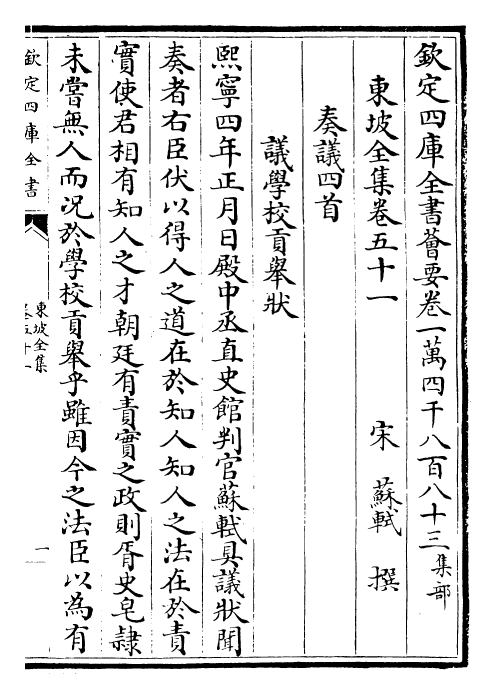 欽定四庫全書薈要卷一萬四千八百八十三集部
東坡全集卷五十一
宋 蘇軾 撰
奏議四首
議學校貢舉狀
熙寧四年正月日殿中丞直史館判官蘇軾具議狀聞
奏者右臣伏以得人之道在於知人知人之法在於責
實使君相有知人之才朝廷有責實之政則胥史皂隷
未嘗無人而况於學校貢舉乎雖因今之法臣以為有
欽定四庫全書
東坡全集
卷五十一
一